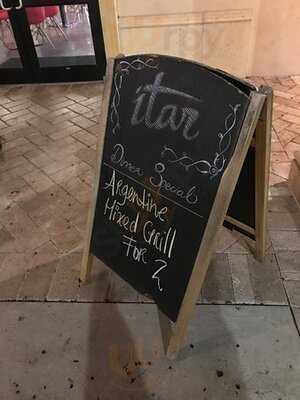 itar
Dinner Special
Argentine
Mixed Grill
For 2